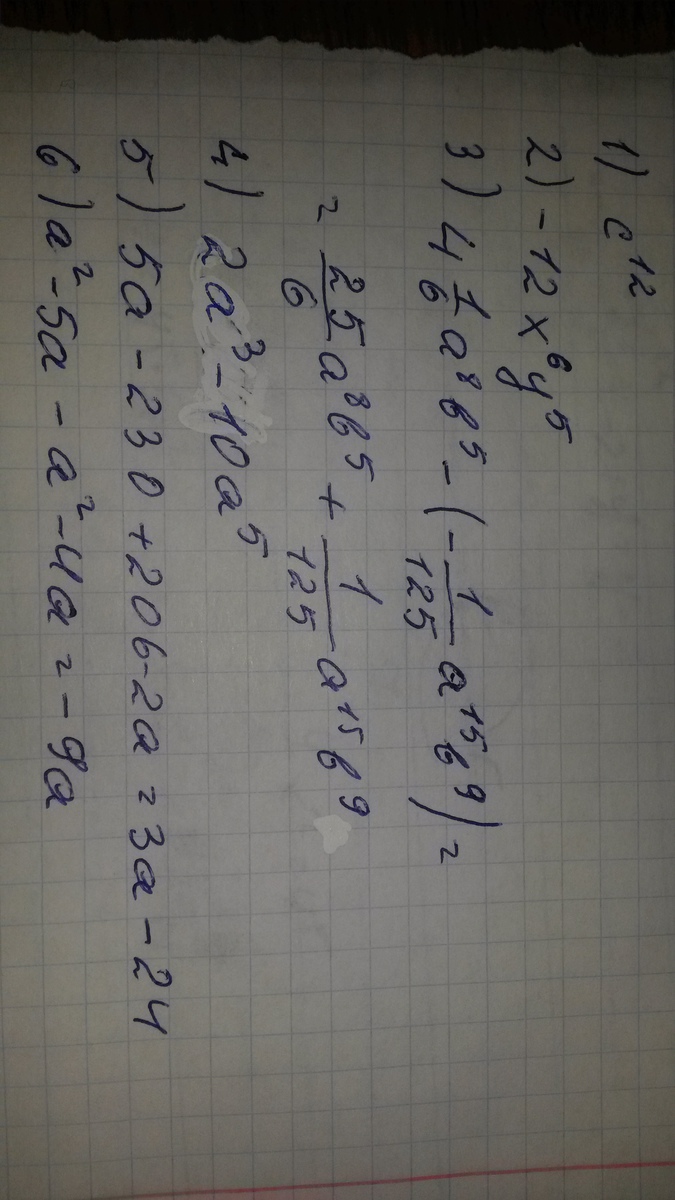 1) c¹²
2) -12x⁶y⁵
3) 4 1/6 a⁸b⁵ - (- 1/125 a¹⁵b⁹) =
= 25/6 a⁸b⁵ + 1/125 a¹⁵b⁹
4) 2a³ - 10a⁵
5) 5a - 230 + 206 - 2a = 3a - 24
6) a² - 5a - a² - 4a = - 9a